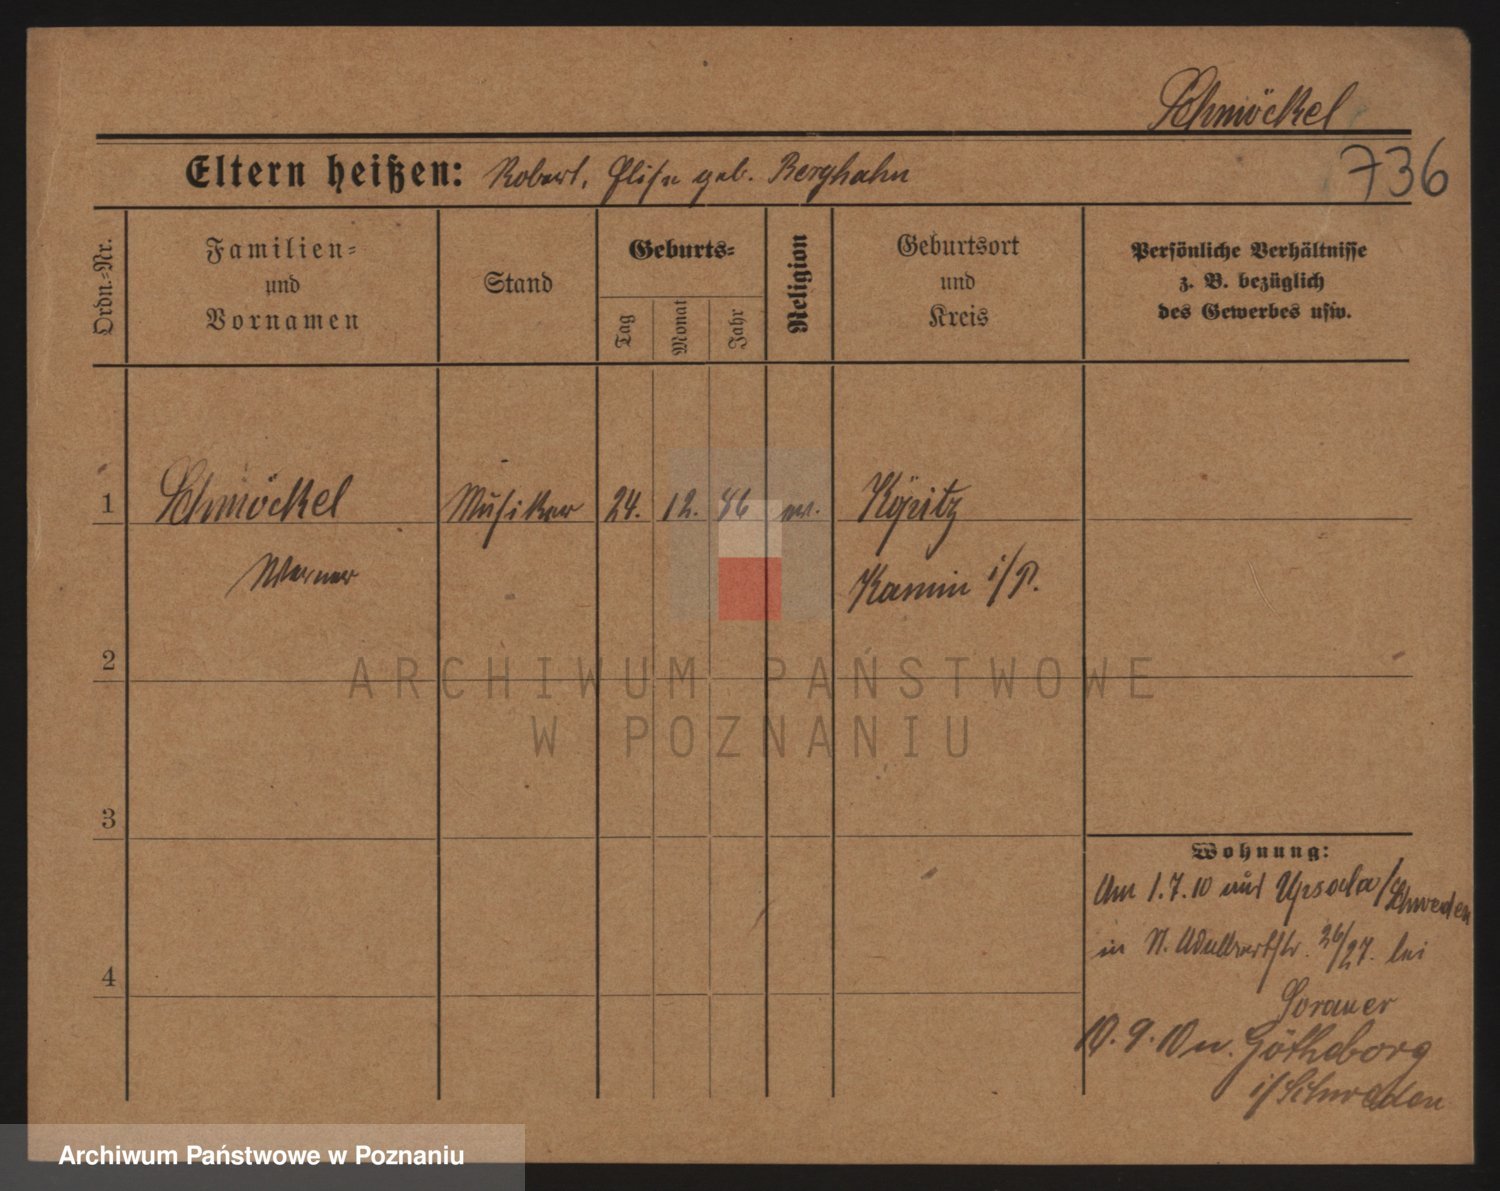 Schmöckel
Eltern heißen: Robert, Elise geb. Berghahn
736
Ordn.-Nr.
Familien-
und
Vornamen
Stand
Geburts-
Tag
Monat
Jahr
Religion
Geburtsort
und
Kreis
Persönliche Verhältnisse
z. B. bezüglich
des Gewerbes usw.
1
Schmöckel
Musiker
24.
12.
86
ev.
Köpitz
Werner
Kamin i/P.
2
ARCHIWUM PAŃSTWOWE
W POZNANIU
3
Wohnung:
Am 1.7.10 aus Upsala/Schweden
in St. Adalbertstr. 26/27. bei
4
Sorauer
10.9.10 n. Götheborg
i/Schweden
Archiwum Państwowe w Poznaniu